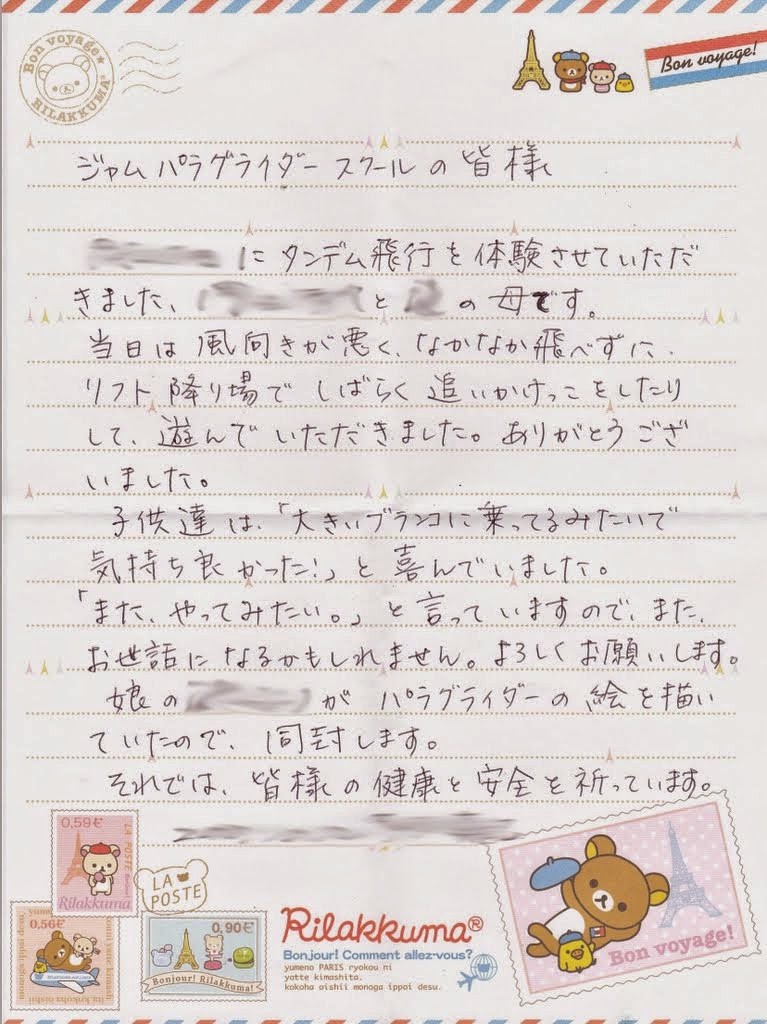 Bon voyage★
RILAKKUMA®
Bon voyage!
ジャム パラグライダー スクールの皆様
に タンデム飛行を体験させていただ
きました、 と の母です。
当日は風向きが悪く、なかなか飛べずに、
リフト降り場でしばらく追いかけっこをしたり
して、遊んでいただきました。ありがとうござ
いました。
子供達は、「大きいブランコに乗ってるみたいで
気持ち良かった!」と喜んでいました。
「また、やってみたい。」と言っていますので、また、
お世話になるかもしれません。よろしくお願いします。
娘の が パラグライダーの絵を描い
ていたので、同封します。
それでは、皆様の健康と安全を祈っています。
0,59€
LA POSTE
Rilakkuma
LA POSTE
0,56€
0,90€
Bonjour! Rilakkuma!
Rilakkuma®
Bonjour! Comment allez-vous?
yumeno PARIS ryokou ni
yatte kimashita.
kokoha oishii monoga ippai desu.
Bon voyage!